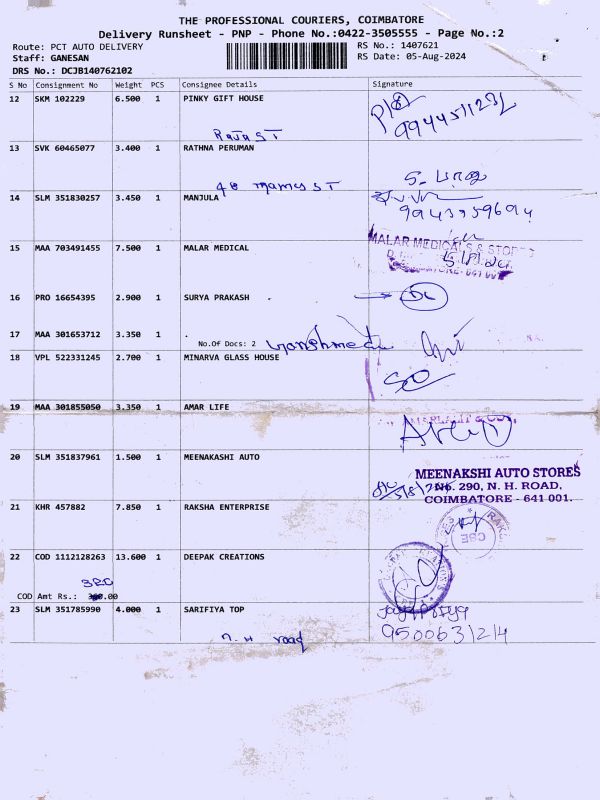 THE PROFESSIONAL COURIERS, COIMBATORE
Delivery Runsheet - PNP - Phone No.:0422-3505555 - Page No.:2
Route: PCT AUTO DELIVERY RS No.: 1407621
Staff: GANESAN RS Date: 05-Aug-2024
DRS No.: DCJB140762102
S No Consignment No Weight PCS Consignee Details Signature
12 SKM 102229 6.500 1 PINKY GIFT HOUSE
Raja ST
13 SVK 60465077 3.400 1 RATHNA PERUMAN
14 SLM 351830257 3.450 1 MANJULA
15 MAA 703491455 7.500 1 MALAR MEDICAL
MALAR MEDICALS & STORES
5/8/24
16 PRO 16654395 2.900 1 SURYA PRAKASH DL
17 MAA 301653712 3.350 1 .
No.Of Docs: 2
18 VPL 522331245 2.700 1 MINARVA GLASS HOUSE
19 MAA 301855050 3.350 1 AMAR LIFE
20 SLM 351837961 1.500 1 MEENAKASHI AUTO
MEENAKSHI AUTO STORES
No. 290, N. H. ROAD,
COIMBATORE - 641 001.
21 KHR 457882 7.850 1 RAKSHA ENTERPRISE
CBE
22 COD 1112128263 13.600 1 DEEPAK CREATIONS
COD Amt Rs.:
23 SLM 351785990 4.000 1 SARIFIYA TOP
9500631214
n. H road